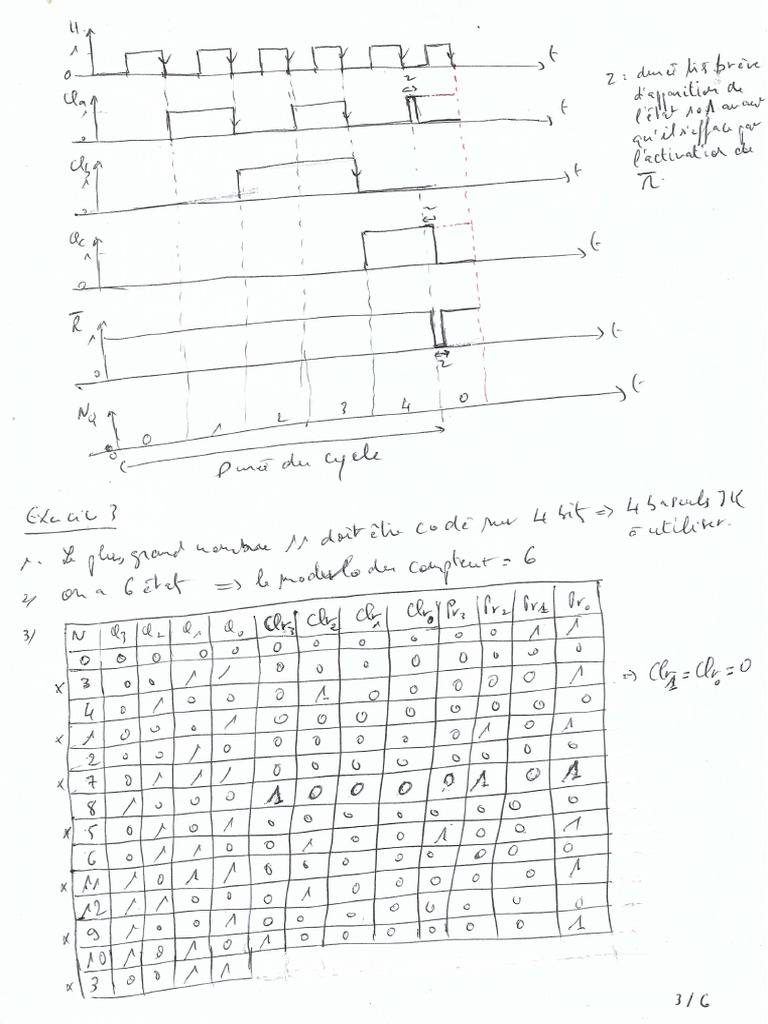 H
1
0
t
Qa
1
0
τ
t
τ : durée très brève
d'apparition de
l'état 101 avant
qu'il s'efface par
l'activation de
R̅.
Qb
1
0
t
Qc
1
0
τ
t
R̅
1
0
τ
t
NQ
0
0 1 2 3 4 0
t
Durée du cycle
Exercice 3
1. Le plus grand nombre 11 doit être codé sur 4 bit => 4 bascules JK
à utiliser.
2) on a 6 état => le modulo du compteur = 6
3) N Q3 Q2 Q1 Q0 Clr3 Clr2 Clr1 Clr0 Pr3 Pr2 Pr1 Pr0
0 0 0 0 0 0 0 0 0 0 0 1 1
x 3 0 0 1 1 0 0 0 0 0 0 0 0
4 0 1 0 0 0 1 0 0 0 0 0 1
x 1 0 0 0 1 0 0 0 0 0 0 0 0
2 0 0 1 0 0 0 0 0 0 1 0 1
x 7 0 1 1 1 0 0 0 0 0 0 0 0
8 1 0 0 0 1 0 0 0 0 1 0 1
x 5 0 1 0 1 0 0 0 0 0 0 0 0
6 0 1 1 0 0 1 0 0 1 0 0 1
x 11 1 0 1 1 0 0 0 0 0 0 0 0
12 1 1 0 0 0 1 0 0 0 0 0 1
x 9 1 0 0 1 0 0 0 0 0 0 0 0
10 1 0 1 0 1 0 0 0 0 0 0 1
x 3 0 0 1 1
=> Clr1 = Clr0 = 0
3/6